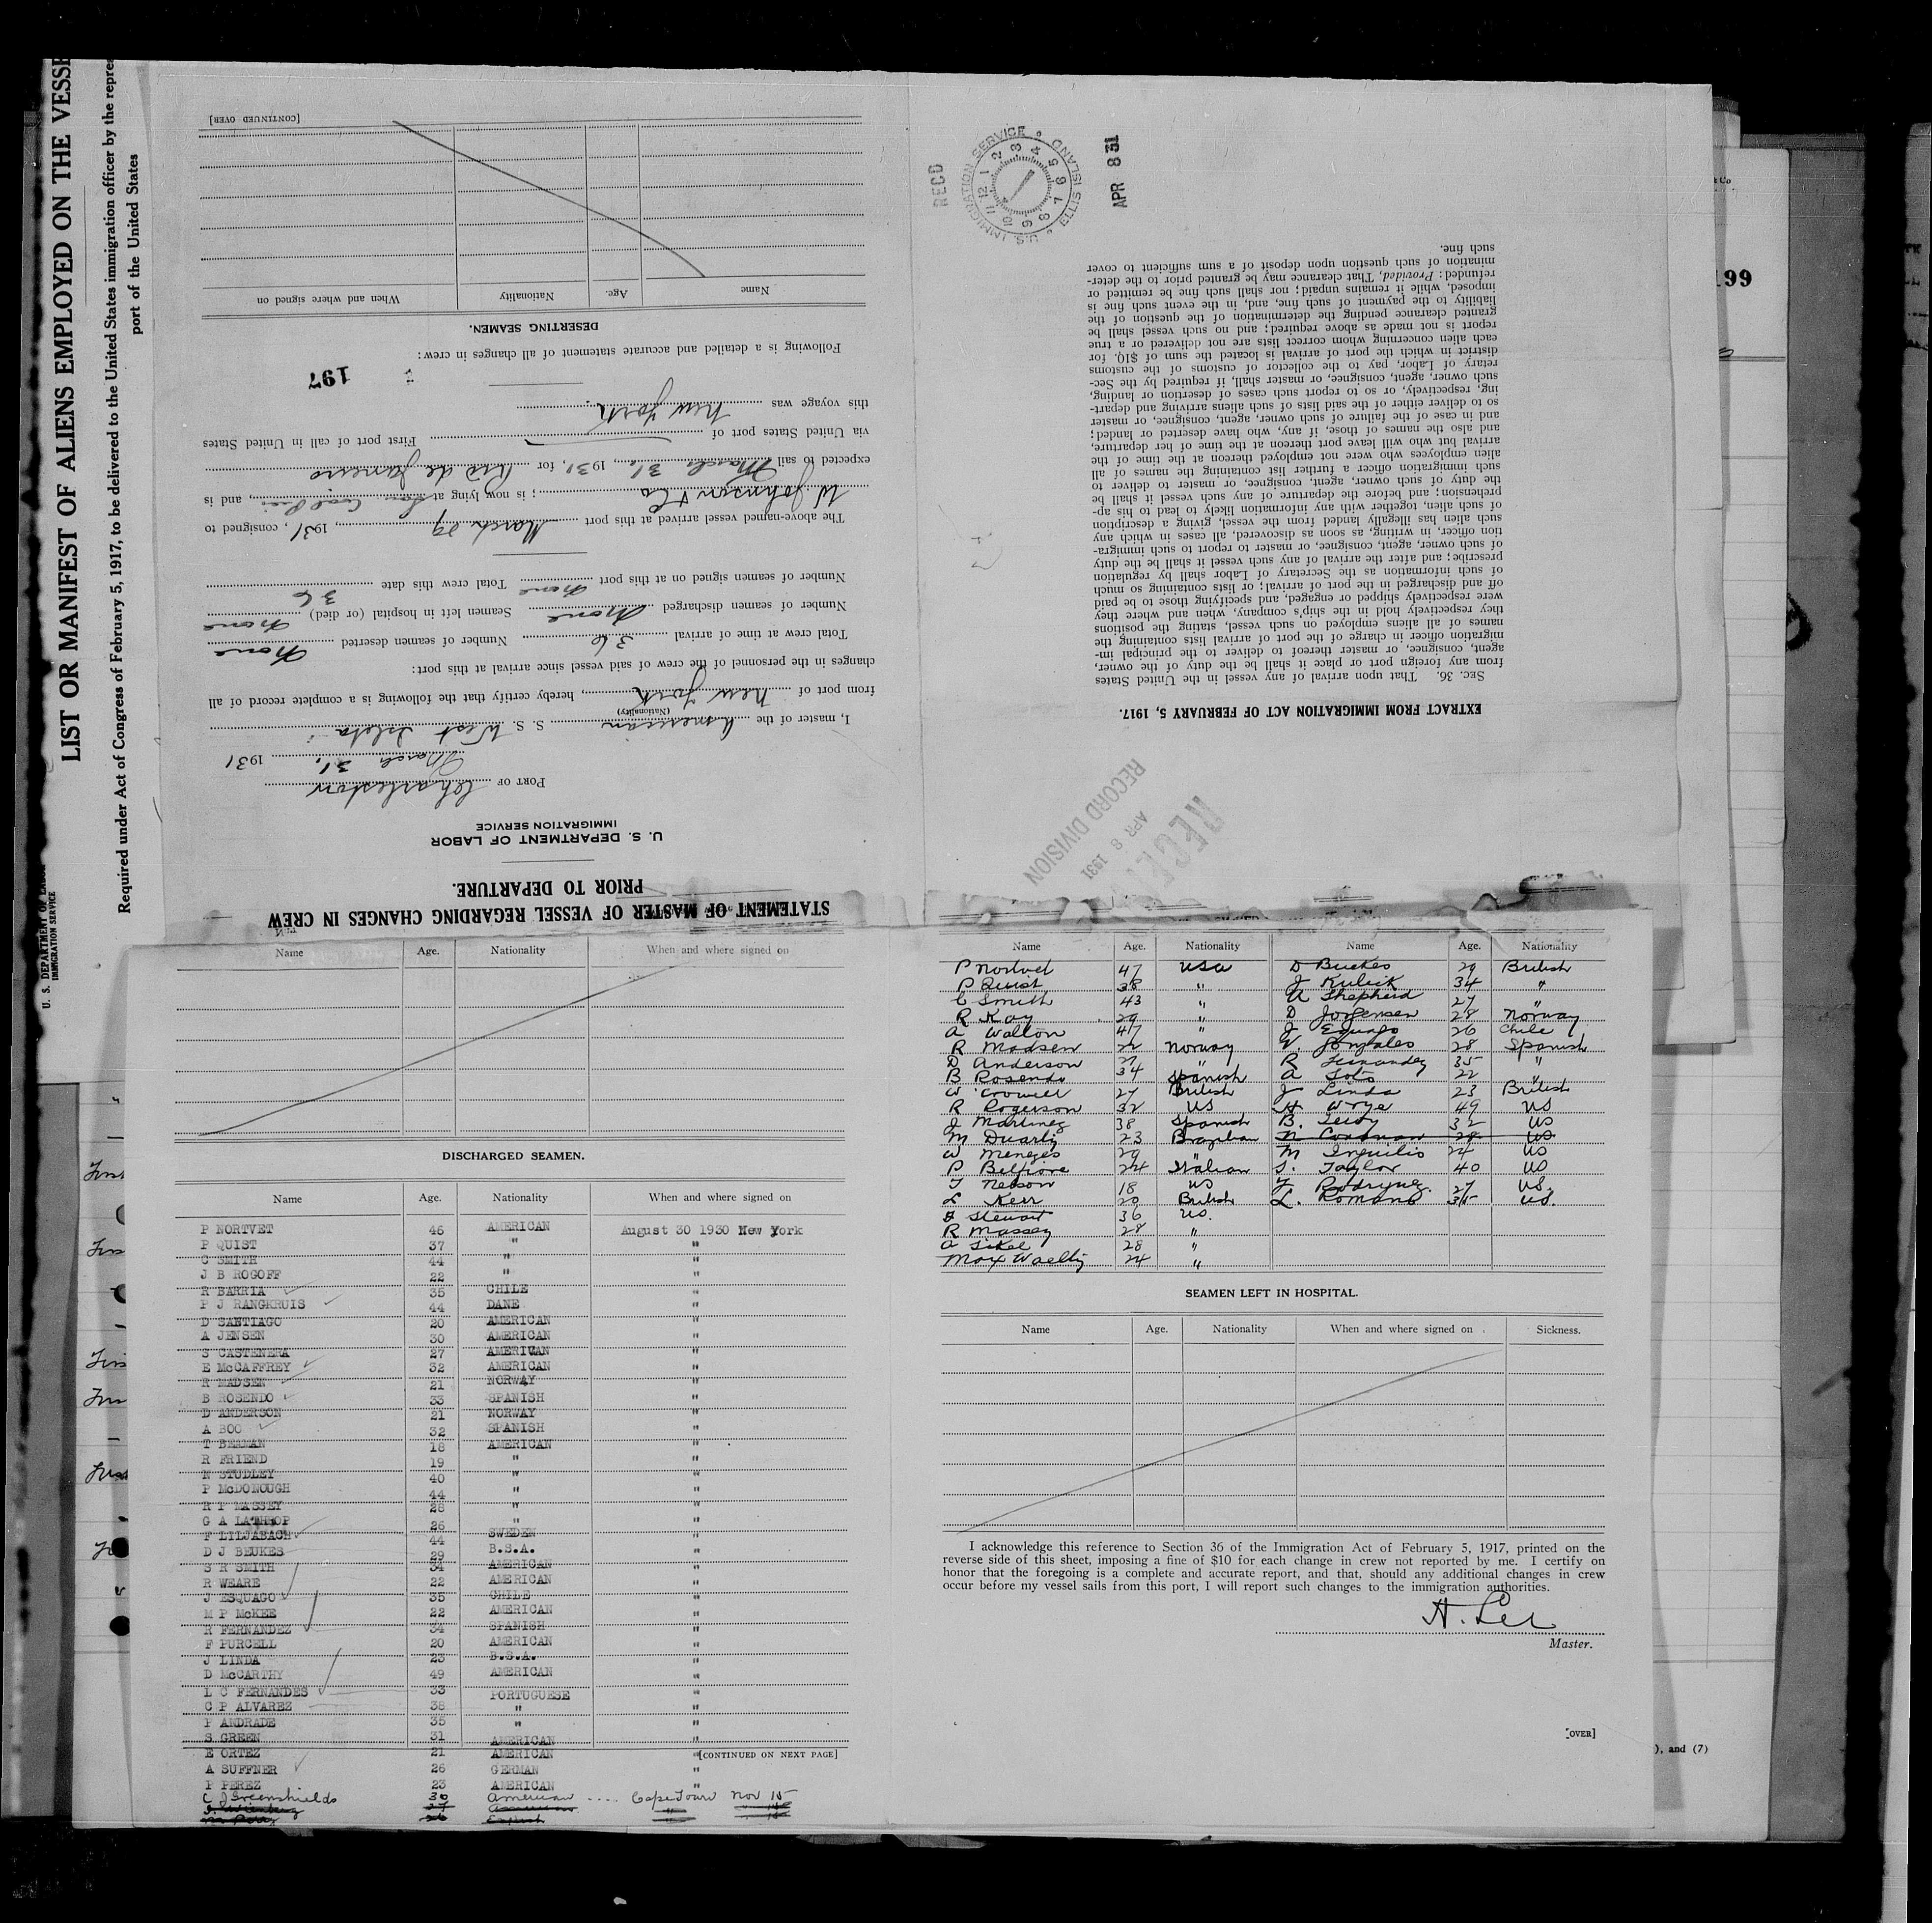 LIST OR MANIFEST OF ALIENS EMPLOYED ON THE VESSE
Required under Act of Congress of February 5, 1917, to be delivered to the United States immigration officer by the repre
port of the United States
U. S. DEPARTMENT OF LABOR
IMMIGRATION SERVICE
STATEMENT OF MASTER OF VESSEL REGARDING CHANGES IN CREW
PRIOR TO DEPARTURE.
U. S. DEPARTMENT OF LABOR
IMMIGRATION SERVICE
PORT OF Charleston
March 31, 1931
I, master of the American S. S. West Isleta
(Nationality)
from port of New York, hereby certify that the following is a complete record of all
changes in the personnel of the crew of said vessel since arrival at this port:
Total crew at time of arrival 36 Number of seamen deserted None
Number of seamen discharged None Seamen left in hospital (or died) None
Number of seamen signed on at this port None Total crew this date 36
The above-named vessel arrived at this port March 29, 1931, consigned to
W Johnson & Co; is now lying at, and is
expected to sail March 31, 1931, for Rio de Janeiro
via United States port of First port of call in United States
this voyage was New York.
197
Following is a detailed and accurate statement of all changes in crew:
DESERTING SEAMEN.
Name Age. Nationality When and where signed on
[CONTINUED OVER]
EXTRACT FROM IMMIGRATION ACT OF FEBRUARY 5, 1917.
SEC. 36. That upon arrival of any vessel in the United States
from any foreign port or place it shall be the duty of the owner,
agent, consignee, or master thereof to deliver to the principal im-
migration officer in charge of the port of arrival lists containing the
names of all aliens employed on such vessel, stating the positions
they respectively hold in the ship's company, when and where they
were respectively shipped or engaged, and specifying those to be paid
off and discharged in the port of arrival; or lists containing so much
of such information as the Secretary of Labor shall by regulation
prescribe; and after the arrival of any such vessel it shall be the duty
of such owner, agent, consignee, or master to report to such immigra-
tion officer, in writing, as soon as discovered, all cases in which any
such alien has illegally landed from the vessel, giving a description
of such alien, together with any information likely to lead to his ap-
prehension; and before the departure of any such vessel it shall be
the duty of such owner, agent, consignee, or master to deliver to
such immigration officer a further list containing the names of all
alien employees who were not employed thereon at the time of the
arrival but who will leave port thereon at the time of her departure,
and also the names of those, if any, who have deserted or landed;
and in case of the failure of such owner, agent, consignee, or master
so to deliver either of the said lists of such aliens arriving and depart-
ing, respectively, or so to report such cases of desertion or landing,
such owner, agent, consignee, or master shall, if required by the Sec-
retary of Labor, pay to the collector of customs of the customs
district in which the port of arrival is located the sum of $10 for
each alien concerning whom correct lists are not delivered or a true
report is not made as above required; and no such vessel shall be
granted clearance pending the determination of the question of the
liability to the payment of such fine, and, in the event such fine is
imposed, while it remains unpaid; nor shall such fine be remitted or
refunded: Provided, That clearance may be granted prior to the deter-
mination of such question upon deposit of a sum sufficient to cover
such fine.
RECD
U.S. IMMIGRATION SERVICE • ELLIS ISLAND
APR 8 31
RECEIVED
APR 8 1931
RECORD DIVISION
199
Name Age. Nationality When and where signed on
DISCHARGED SEAMEN.
Name Age. Nationality When and where signed on
P NORTVET 46 AMERICAN August 30 1930 New York
P QUIST 37 " "
C SMITH 44 " "
J B ROGOFF 22 " "
R BARRIA 35 CHILE "
P J RANGKRUIS 44 DANE "
D SANTIAGO 20 AMERICAN "
A JENSEN 30 AMERICAN "
S CASTENERA 27 AMERICAN "
E McCAFFREY 32 AMERICAN "
R MADSEN 21 NORWAY "
B ROSENDO 33 SPANISH "
D ANDERSON 21 NORWAY "
A BOO 32 SPANISH "
T BERMAN 18 AMERICAN "
R FRIEND 19 " "
N STUDLEY 40 " "
P McDONOUGH 44 " "
R P MASSEY 28 " "
G A LATHROP 26 " "
F LILJABACH 44 SWEDEN "
D J BEUKES 29 B.S.A. "
S R SMITH 34 AMERICAN "
R WEARE 22 AMERICAN "
J ESQUAGO 35 CHILE "
M P McKEE 22 AMERICAN "
R FERNANDEZ 34 SPANISH "
F PURCELL 20 AMERICAN "
J LINDA 23 B.S.A. "
D McCARTHY 49 AMERICAN "
L C FERNANDES 33 PORTUGUESE "
C P ALVAREZ 38 " "
P ANDRADE 35 " "
S GREEN 31 AMERICAN "
E ORTEZ 21 AMERICAN "
[CONTINUED ON NEXT PAGE]
A SUFFNER 26 GERMAN "
P PEREZ 23 AMERICAN "
C J Greenshields 30 American .... Cape Town Nov 15
Name Age. Nationality Name Age. Nationality
P Nortvet 47 USA D Buekes 29 British
P Quist 38 " J Kulick 34 "
C Smith 43 " A Shepherd 27 "
R Kay 29 " D Jorgensen 28 Norway
A Walton 47 " J Equago 26 Chile
R Madsen 22 Norway V. Gonzales 28 Spanish
D Anderson 22 " R Fernandez 35 "
B Rosendo 34 Spanish A Soto 22 "
W Crowell 27 British J Linda 23 British
R Rogerson 32 US H Wrye 49 US
J Martinez 38 Spanish B. Leroy 32 US
M Duarti 23 Brazilian N Cordman 28 US
W Menezes 29 " M Inguilio 24 US
P Belfiore 24 Italian S. Taylor 40 US
T Nelson 18 US F Rodrynez. 27 US.
L Kerr 20 British L. Romano 35 US.
F Stewart 36 US.
R Massey 28 "
A Sikel 28 "
Max Waellig 24 "
SEAMEN LEFT IN HOSPITAL.
Name Age. Nationality When and where signed on Sickness.
I acknowledge this reference to Section 36 of the Immigration Act of February 5, 1917, printed on the
reverse side of this sheet, imposing a fine of $10 for each change in crew not reported by me. I certify on
honor that the foregoing is a complete and accurate report, and that, should any additional changes in crew
occur before my vessel sails from this port, I will report such changes to the immigration authorities.
H. Lee
Master.
[OVER]
), and (7)